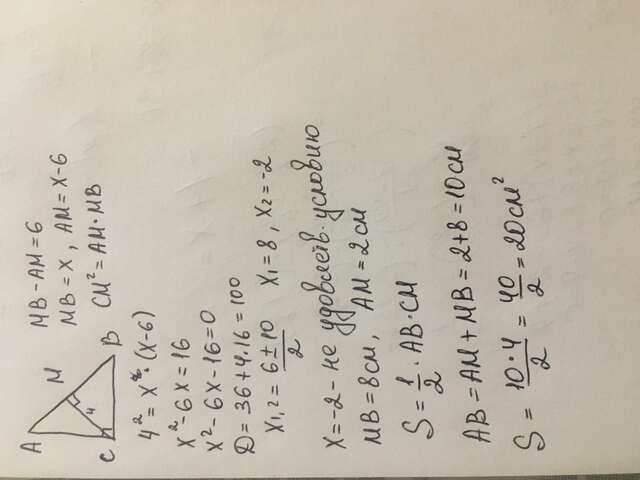 A M B C 4
MB - AM = 6
MB = x, AM = x-6
CM² = AM·MB
4² = x·(x-6)
x² - 6x = 16
x² - 6x - 16 = 0
D = 36 + 4·16 = 100
x₁,₂ = (6 ± 10)/2 x₁ = 8, x₂ = -2
x = -2 - не удовлетв. условию
MB = 8 см, AM = 2 см
S = 1/2 · AB · CM
AB = AM + MB = 2 + 8 = 10 см
S = (10·4)/2 = 40/2 = 20 см²